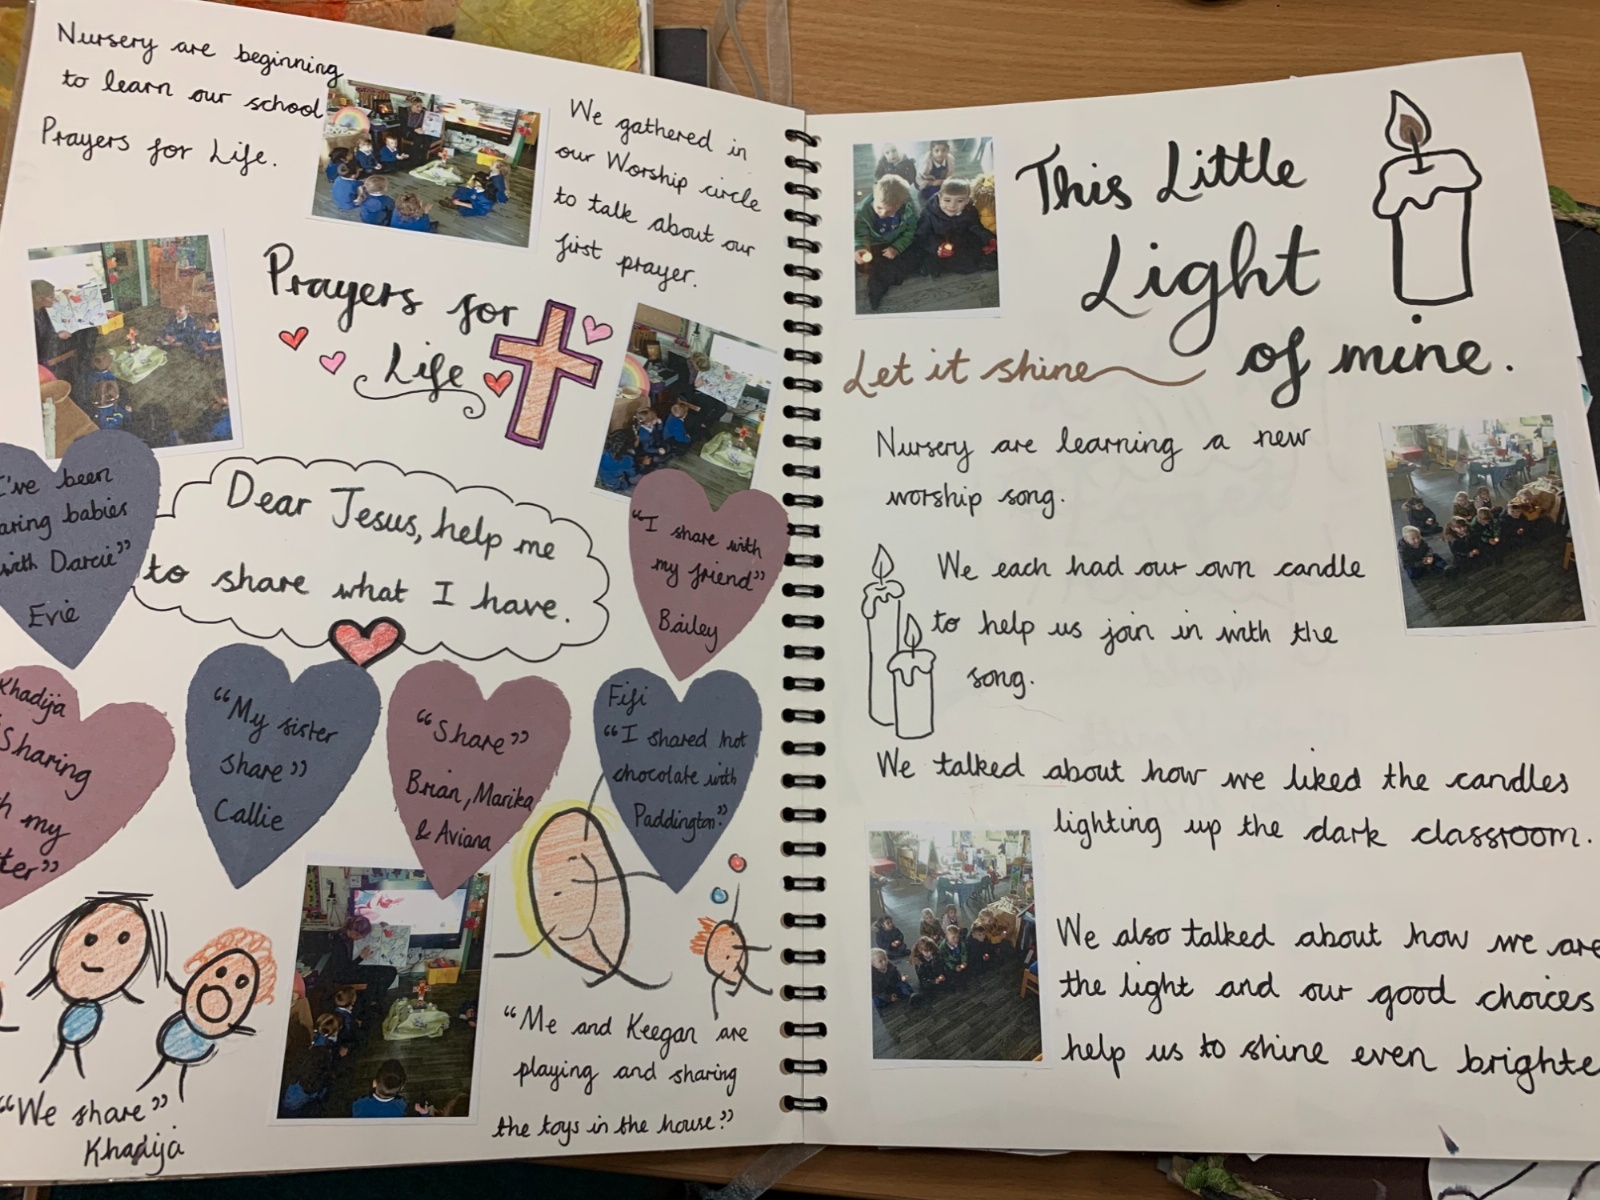 Nursery are beginning
to learn our school
Prayers for Life.
We gathered in
our Worship circle
to talk about our
first prayer.
Prayers for
Life
Dear Jesus, help me
to share what I have.
I've been
aring babies
with Darcie"
Evie
"I share with
my friend"
Bailey
Khadija
Sharing
h my
ter"
"My sister
share"
Callie
"Share"
Brian, Marika
& Aviana
Fifi
"I shared hot
chocolate with
Paddington."
"We share"
Khadija
"Me and Keegan are
playing and sharing
the toys in the house."
This Little
Light
of mine.
Let it shine
Nursery are learning a new
worship song.
We each had our own candle
to help us join in with the
song.
We talked about how we liked the candles
lighting up the dark classroom.
We also talked about how we are
the light and our good choices
help us to shine even brighte